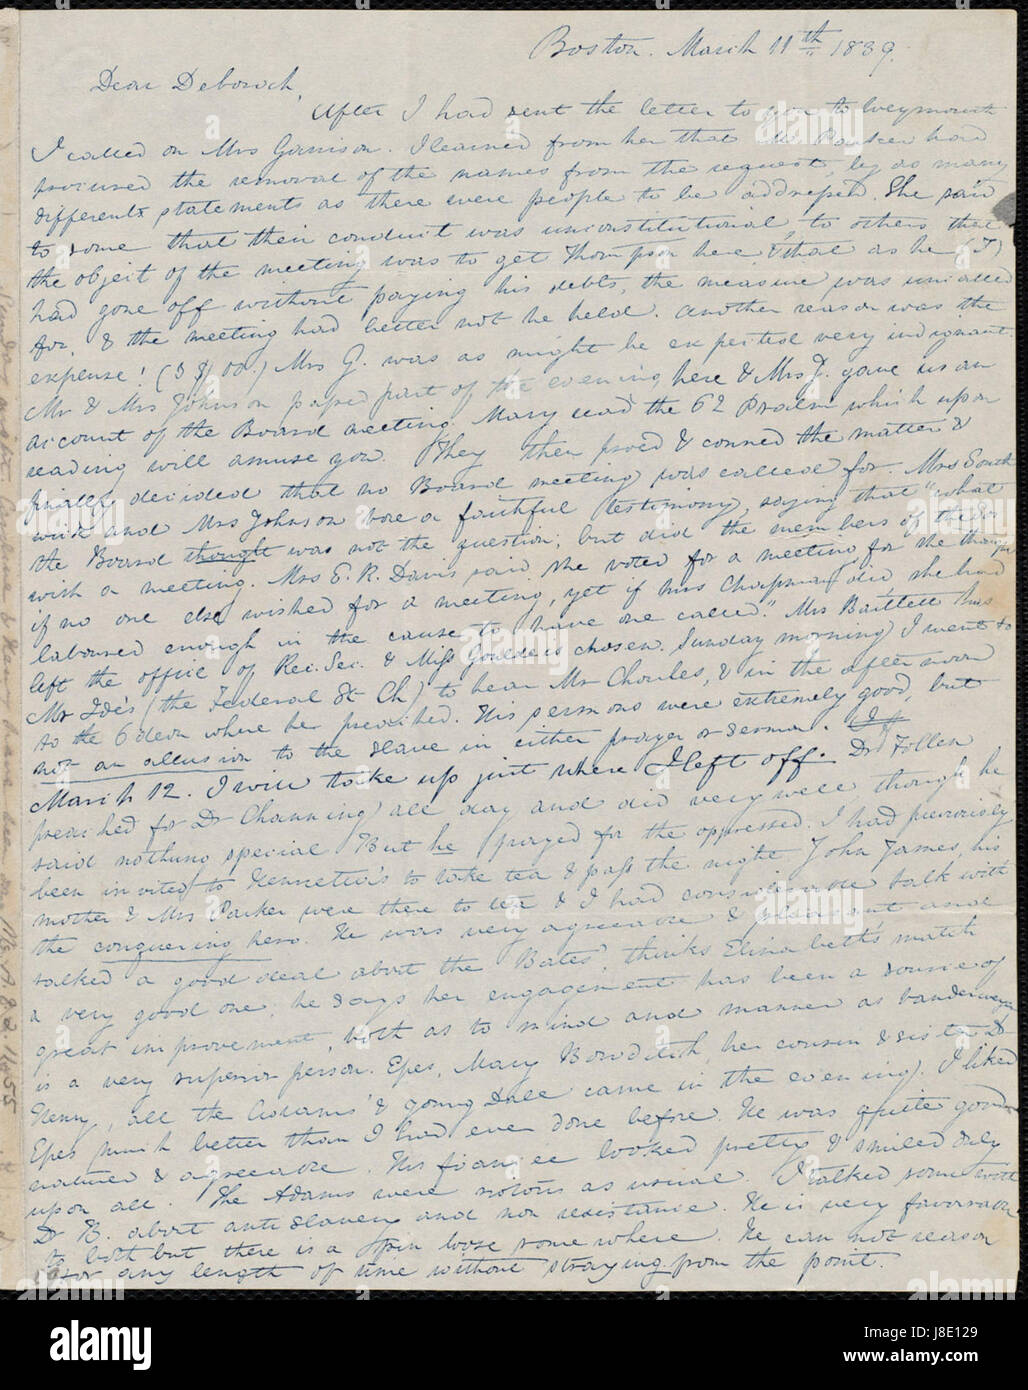 Boston. March 11th 1839.
Dear Deborah,
After I had sent the letter to you to Weymouth
I called on Mrs Garrison. I learned from her that Mrs Parker had
procured the removal of the names from the request, by as many
different statements as there were people to be addressed. She said
to some that their conduct was unconstitutional, to others that
the object of the meeting was to get Thompson here & that as he (T)
had gone off without paying his debts, the measure was uncalled
for, & the meeting had better not be held. Another reason was the
expense! Mrs G. was as might be expected very indignant.
Mr & Mrs Johnson passed part of the evening here & Mrs J. gave us an
account of the Board meeting. Mary read the 62 Psalm which upon
reading will amuse you. They then pro'd & conned the matter &
finally decided that no Board meeting was called for. Mrs South
wick and Mrs Johnson bore a faithful testimony, saying that "what
the Board thought was not the question; but did the members of the So
wish a meeting. Mrs E. K. Davis said she voted for a meeting for she thought
if no one else wished for a meeting, yet if Mrs Chapman did she had
laboured enough in the cause to have one called". Mrs Bartlett has
left the office of Rec. Sec. & Miss Gould is chosen. Sunday morning I went to
Mr Ide's (the Federal St Ch) to hear Mr Choules, & in the afternoon
to the Odeon where he preached. His sermons were extremely good, but
not an allusion to the slave in either prayer or sermon.
March 12. I will take up just where I left off. Dr Follen
preached for Dr Channing all day and did very well though he
said nothing special. But he prayed for the oppressed. I had previously
been invited to Henrietta's to take tea & pass the night. John James, his
mother & Mrs Parker were there to tea & I had considerable talk with
the conquering hero. He was very agreeable & pleasant and
talked a good deal about the Bates', thinks Elizabeth's match
a very good one, he says her engagement has been a source of
great improvement, both as to mind and manner as
is a very superior person. Epes, Mary Bowditch, her cousin & sister Dr
Henry, all the Adams' & young Dall came in the evening. I liked
Epes much better than I had ever done before. He was quite good
natured & agreeable. His fiancee looked pretty & smiled duly
upon all. The Adams were notous as usual. I talked some with
Dr B. about anti slavery and non resistance. He is very favorable
to both but there is a pin loose somewhere. He can not reason
for any length of time without straying from the point.
alamy
Image ID: J8E129
www.alamy.com